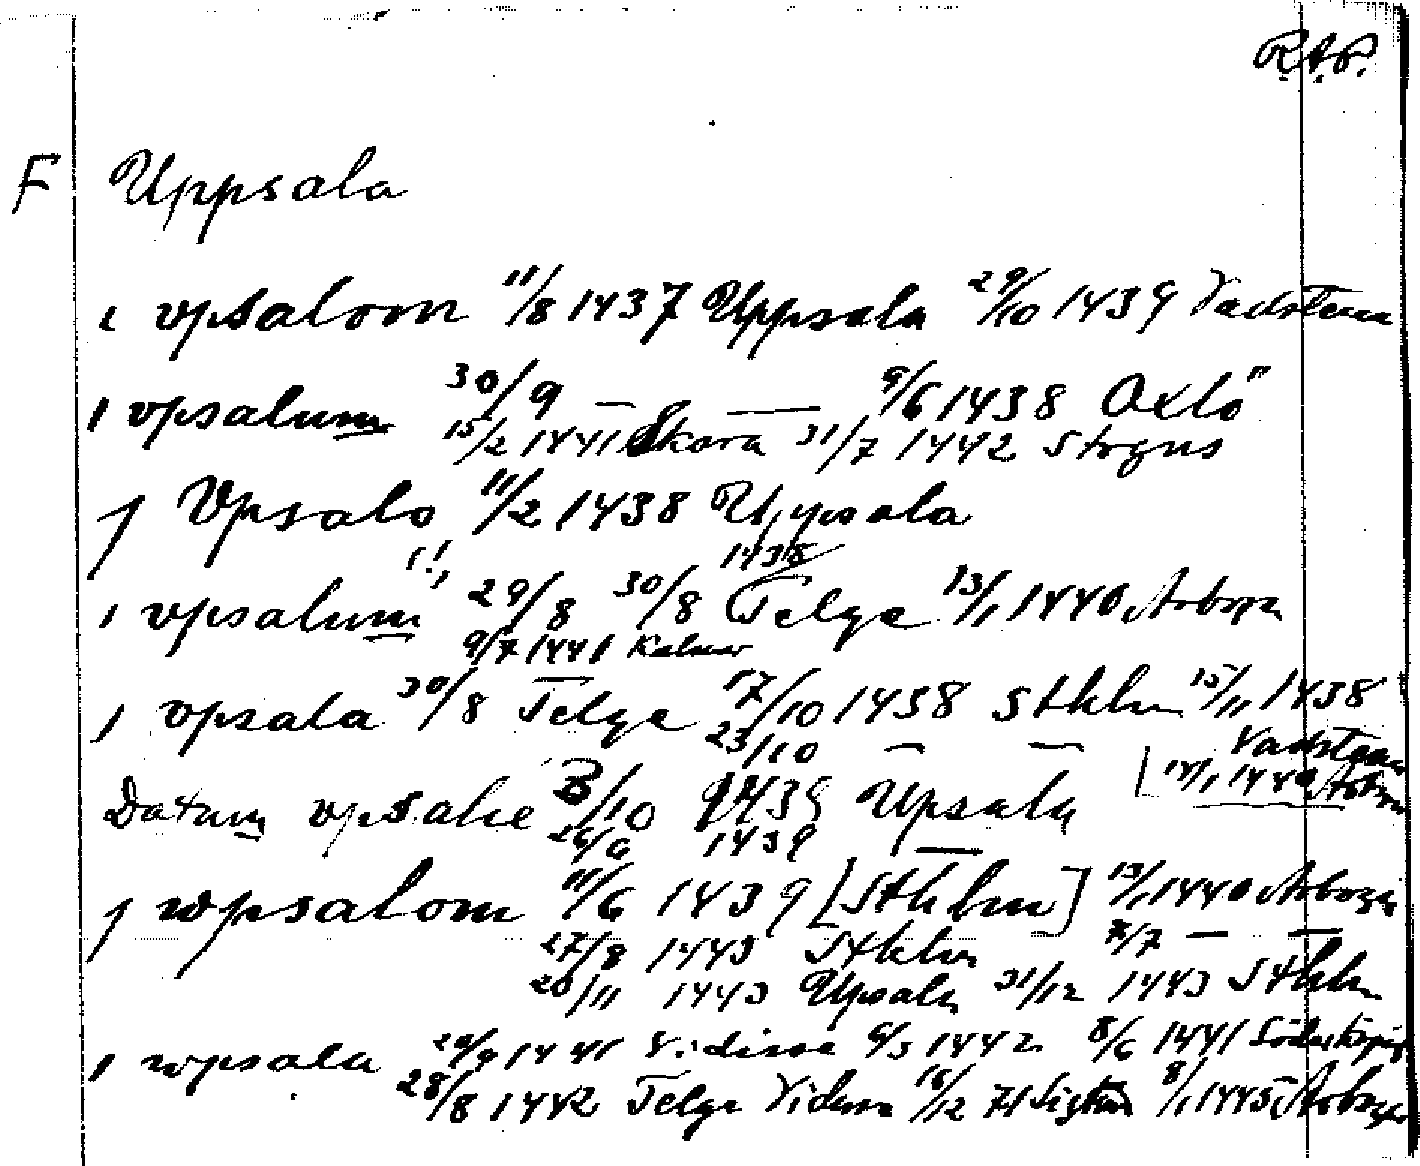 R.A.P.
F Uppsala
i vpsalom 11/8 1437 Uppsala 29/10 1439 Vadstena
i vpsalum 30/9 — — 9/6 1438 Oxlö"
15/2 1441 Skara 31/7 1442 Strgns
j Vpsalo 11/2 1438 Uppsala
(!) 1438
i vpsalum 29/8 30/8 Telge 13/1 1440 Arboga
9/7 1441 Kalmar
i vpsala 30/8 Telge 17/10 1438 Sthlm 15/11 1438
23/10 — — Vadstena
Datum vpsalie 3/10 1439 Upsala [14/1 1440 Arboga
1439 —
j wpsalom 11/6 1439 [Sthlm] 13/1 1440 Arboga
27/8 1443 Sthlm 7/7 — —
20/11 1443 Upsala 31/12 1443 Sthlm
i wpsala 1441 Vidisse 6/3 1442 8/6 1441 Söderköping
28/8 1442 Telge Vidisse 16/12 71 Sigtuna 8/1 1445 Arboga